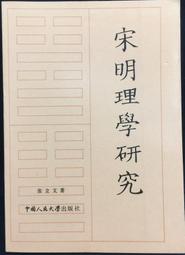 宋明理學研究
张立文著
中國人民大學出版社